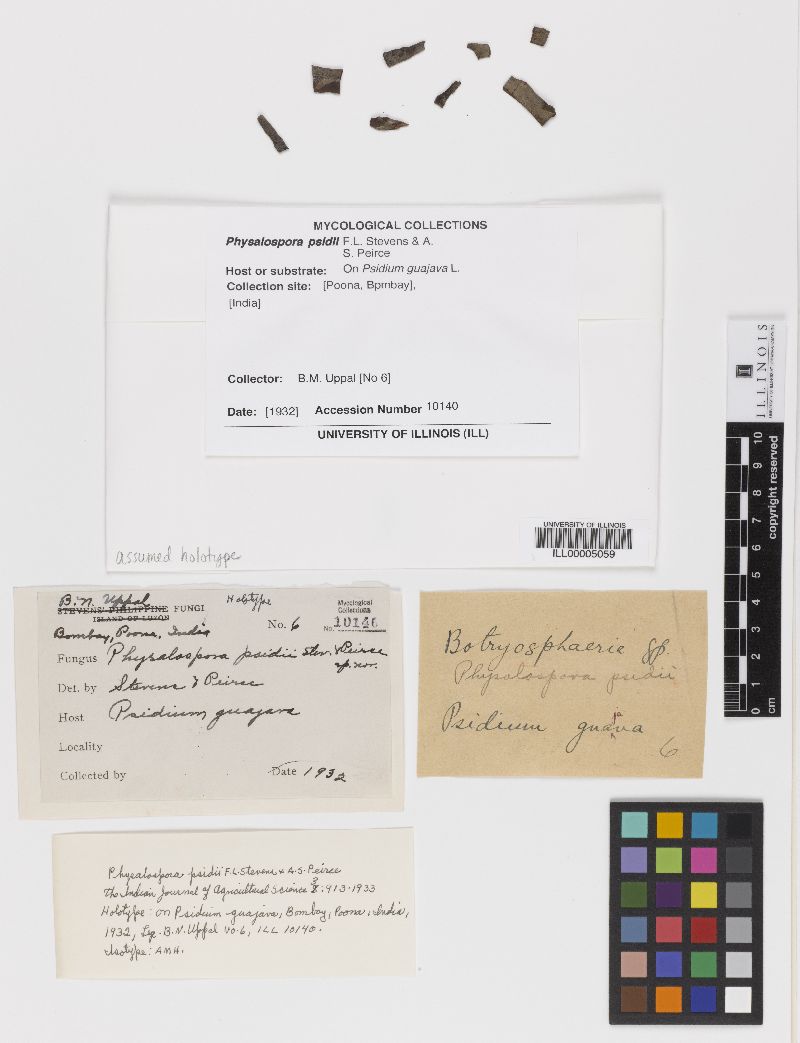 MYCOLOGICAL COLLECTIONS
Physalospora psidii F.L. Stevens & A.
S. Peirce
Host or substrate: On Psidium guajava L.
Collection site: [Poona, Bpmbay],
[India]
Collector: B.M. Uppal [No 6]
Date: [1932] Accession Number 10140
UNIVERSITY OF ILLINOIS (ILL)
assumed holotype
UNIVERSITY OF ILLINOIS
ILL00005059
ILLINOIS
0 1 2 3 4 5 6 7 8 9 10
cm
copyright reserved
B.N. Uppal
STEVENS' PHILIPPINE FUNGI
ISLAND OF LUZON
Holotype
Mycological
Collections
No. 10140
Bombay, Poona, India
No. 6
Fungus Physalospora psidii Stev. & Peirce
sp. nov.
Det. by Stevens & Peirce
Host Psidium guajava
Locality
Collected by
Date 1932
Botryosphaeria sp.
Physalospora psidii
Psidium guava
ja
6
Physalospora psidii F.L. Stevens & A.S. Peirce
The Indian Journal of Agricultural Science 3: 913. 1933
Holotype: on Psidium guajava, Bombay, Poona, India,
1932, Leg. B.N. Uppal no. 6, ILL 10140.
Isotype: AMH.